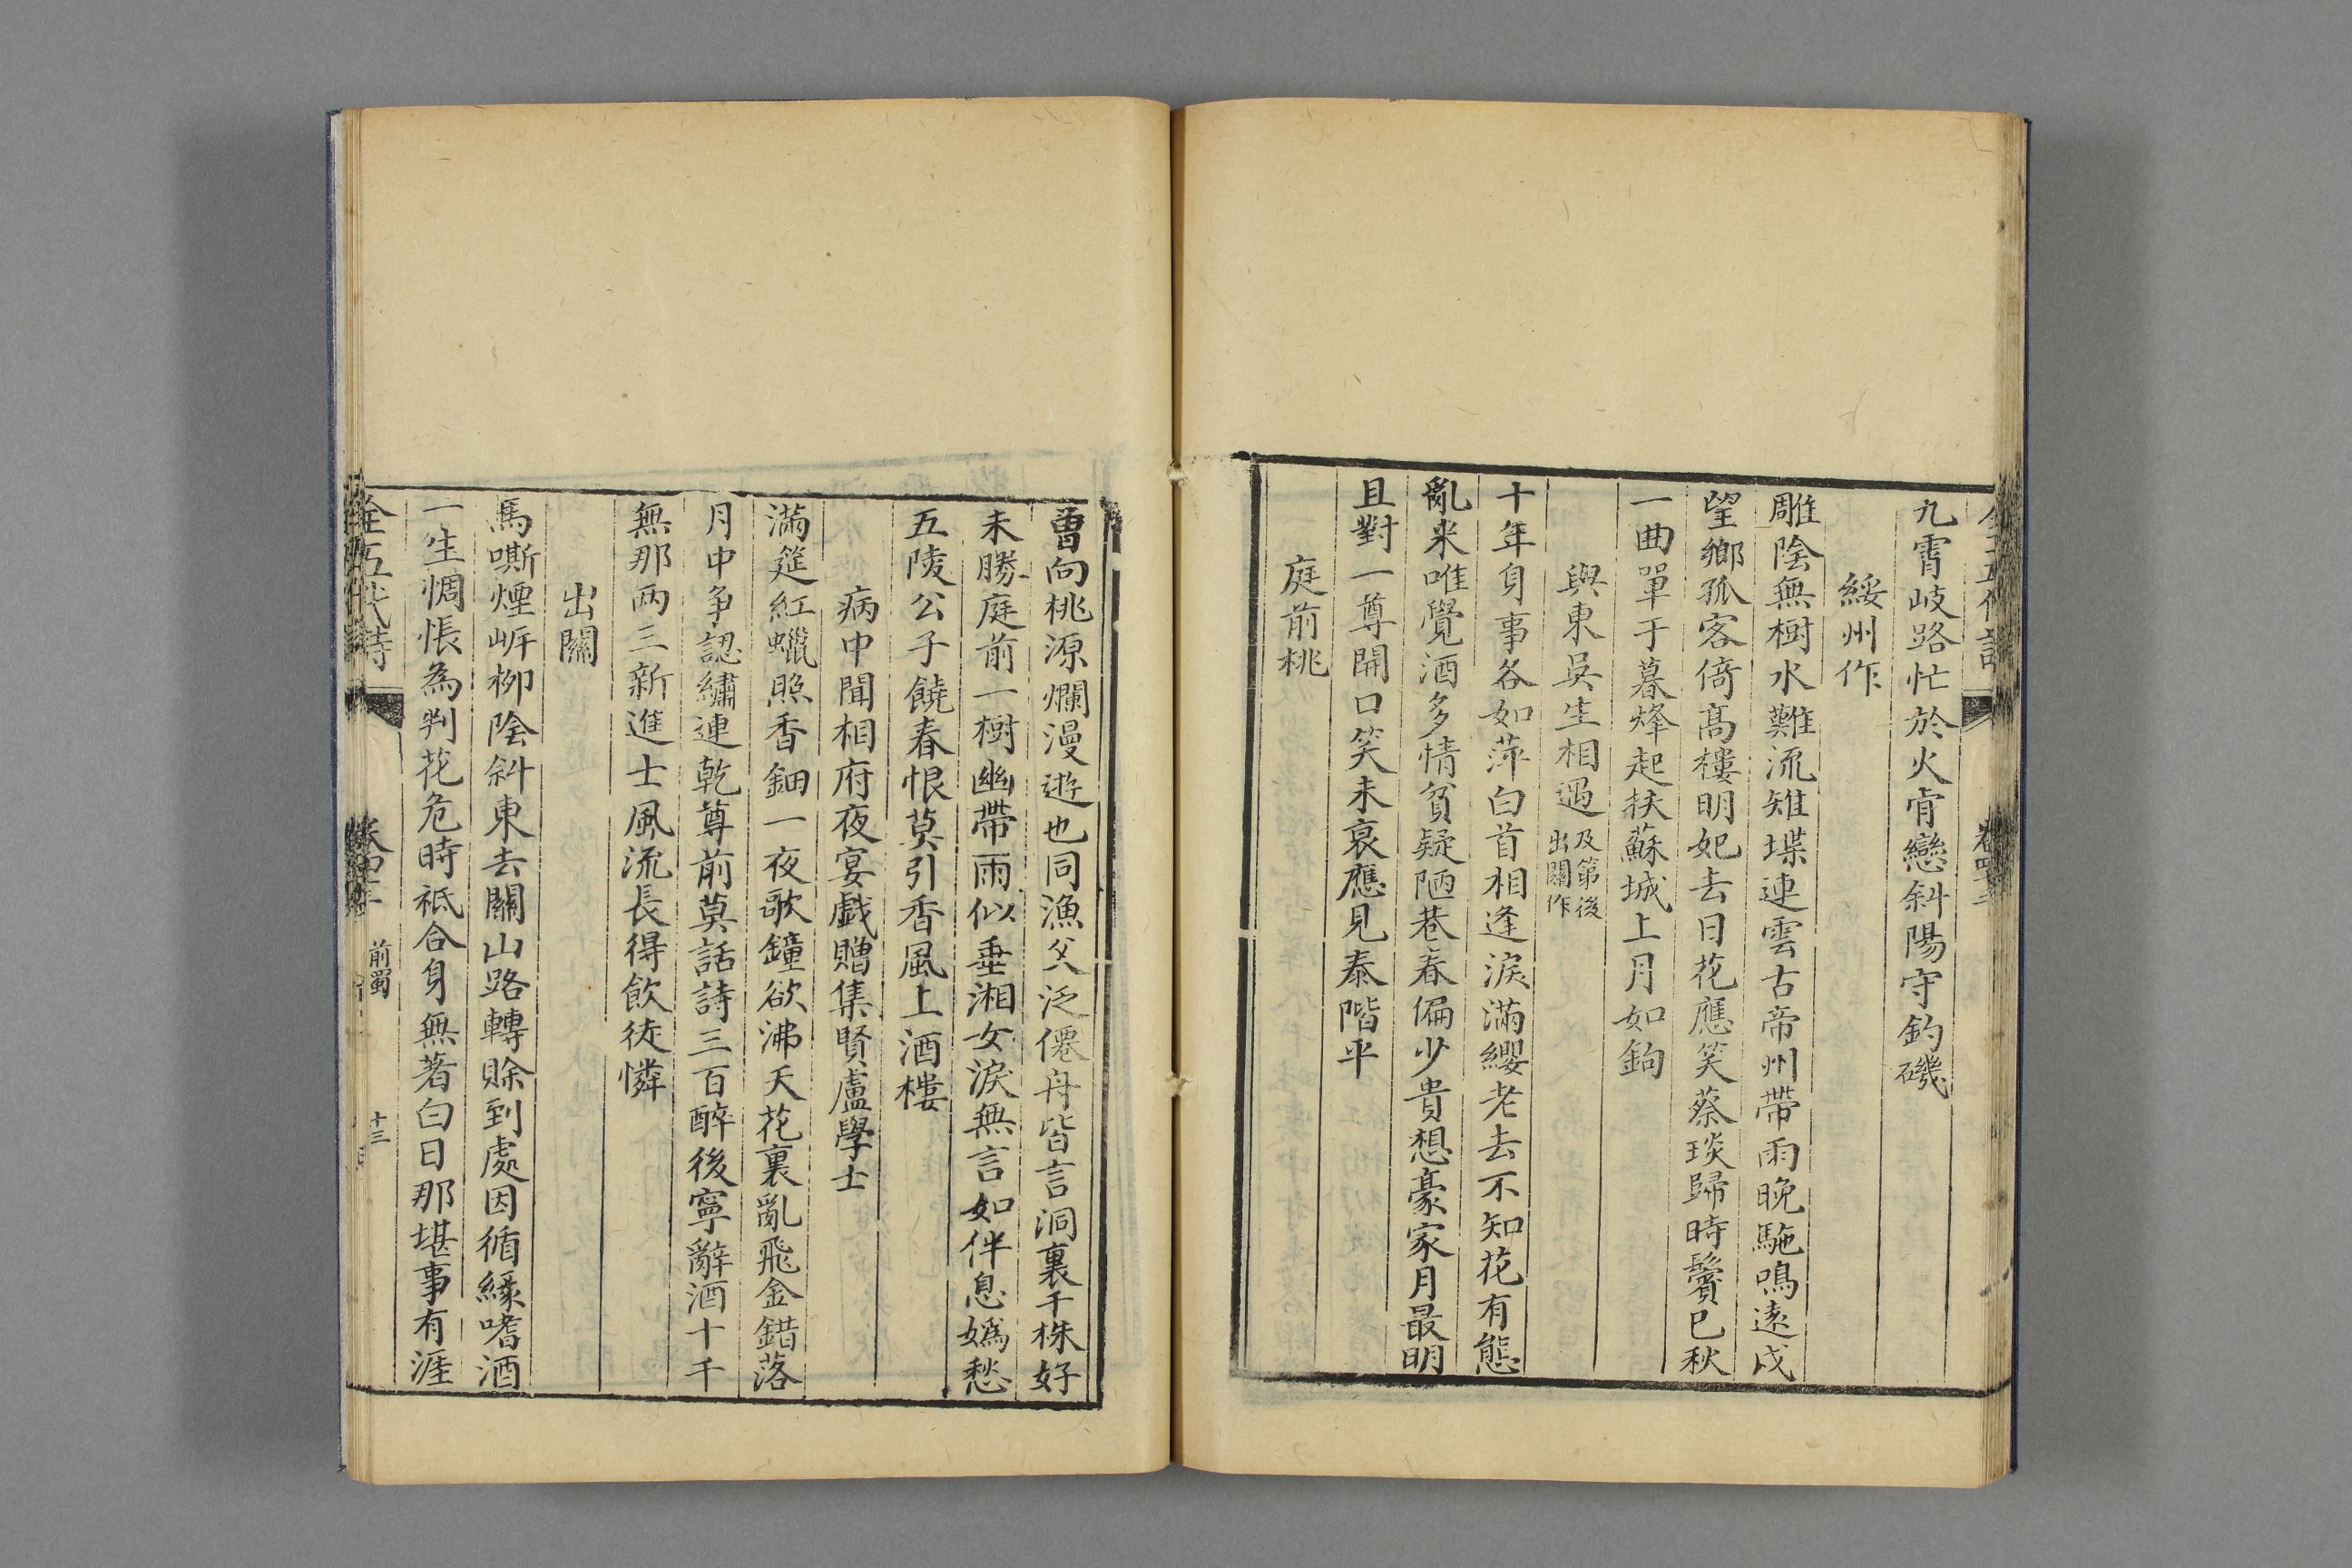 九霄岐路忙於火肯戀斜陽守釣磯
綏州作
雕陰無樹水難流雉堞連雲古帝州帶雨晚駞鳴遠戍
望鄉孤客倚高樓明妃去日花應笑蔡琰歸時鬢已秋
一曲單于暮烽起扶蘇城上月如鉤
與東吳生相遇及第後出關作
十年身事各如萍白首相逢淚滿纓老去不知花有態
亂來唯覺酒多情貧疑陋巷春偏少貴想豪家月最明
且對一尊開口笑未衰應見泰階平
庭前桃
曾向桃源爛漫遊也同漁父泛僊舟皆言洞裏千株好
未勝庭前一樹幽帶雨似垂湘女淚無言如伴息嬀愁
五陵公子饒春恨莫引香風上酒樓
病中聞相府夜宴戲贈集賢盧學士
滿筵紅蠟照香鈿一夜歌鐘欲沸天花裏亂飛金錯落
月中爭認繡連乾尊前莫話詩三百醉後寧辭酒十千
無那兩三新進士風流長得飲徒憐
出關
馬嘶煙岍柳陰斜東去關山路轉賒到處因循緣嗜酒
一生惆悵為判花危時祗合身無著白日那堪事有涯
全五代詩
前蜀
十三